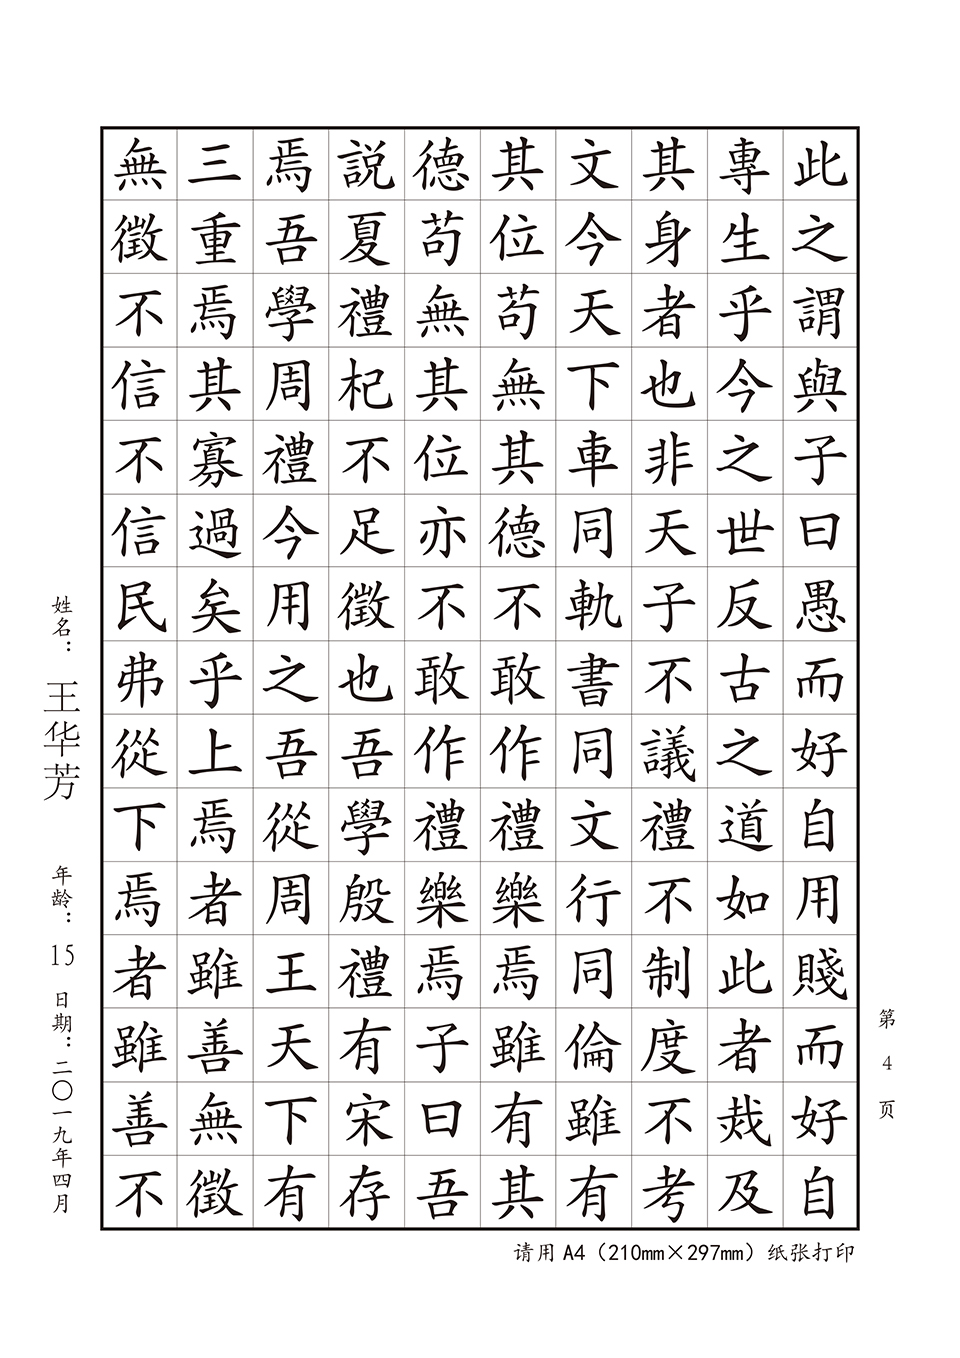 此之謂與子曰愚而好自用賤而好自
專生乎今之世反古之道如此者烖及
其身者也非天子不議禮不制度不考
文今天下車同軌書同文行同倫雖有
其位苟無其德不敢作禮樂焉雖有其
德苟無其位亦不敢作禮樂焉子曰吾
説夏禮杞不足徵也吾學殷禮有宋存
焉吾學周禮今用之吾從周王天下有
三重焉其寡過矣乎上焉者雖善無徵
無徵不信不信民弗從下焉者雖善不
姓名：王华芳 年龄：15 日期：二〇一九年四月
第4页
请用A4（210mm×297mm）纸张打印